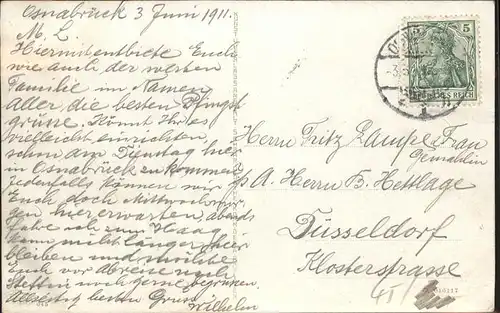 Osnabrück 3 Juni 1911.
M. L.
Hiermit entbiete Euch
wie auch der werten
Familie im Namen
Aller, die besten Pfingst
grüsse. Könnt Ihr es
vielleicht einrichten,
schon am Dienstag hier
in Osnabrück zu kommen
jedenfalls können wir
Euch doch Mittwoch mor
gen hier erwarten, abends
fahre ich zum Haag
kann nicht länger hier
bleiben und möchte
Euch vor Abreise nach
Stettin noch gerne begrüssen.
Allseitig besten Gruss
Wilhelm
5
REICH
Herrn Fritz Lampe Frau
Gemahlin
p. A. Herrn B. Hettlage
Düsseldorf
Klosterstrasse